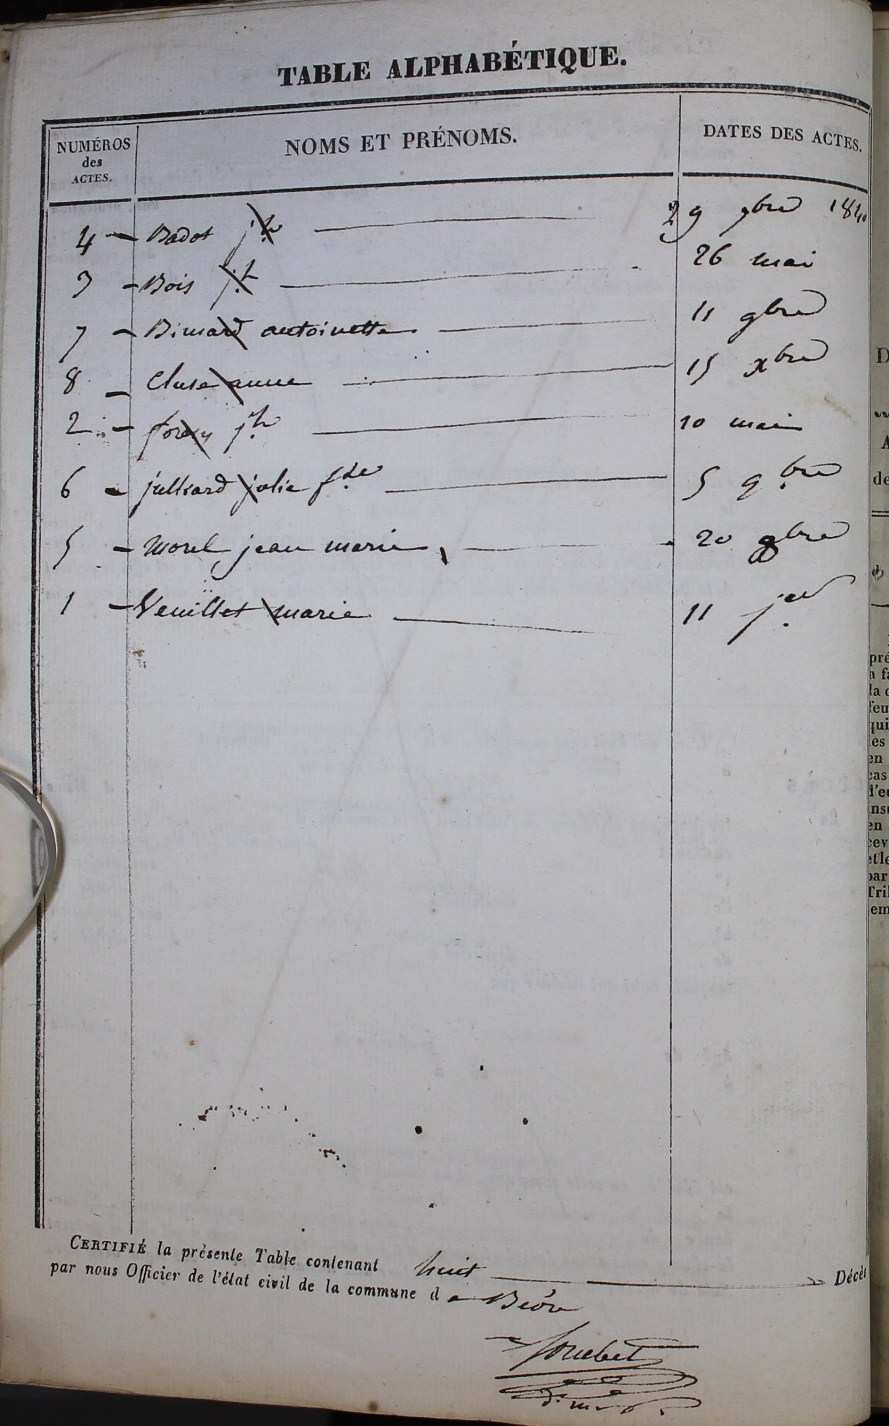 TABLE ALPHABÉTIQUE.
NUMÉROS des ACTES. NOMS ET PRÉNOMS. DATES DES ACTES.
4 — Badot jh — 29 9bre 1840
3 — Bois jh — 26 mai
7 — Binard antoinette — 11 9bre
8 — Cluse anne — 15 xbre
2 — forey jh — 10 mai
6 — julliard julie fde — 5 9bre
5 — Morel jean marie — 20 8bre
1 — Veuillet marie — 11 jer
CERTIFIÉ la présente Table contenant huit — Décè
par nous Officier de l'état civil de la commune d